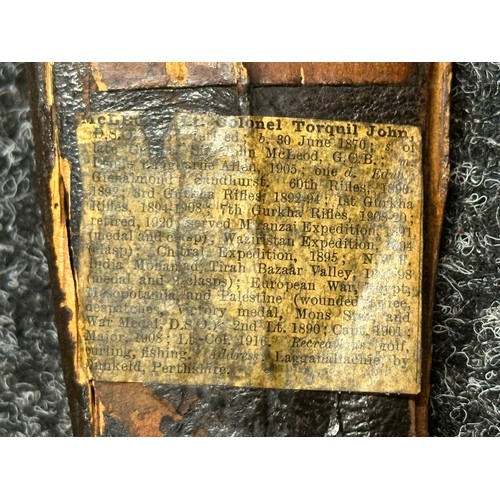 McLEOD, Lt. Colonel Torquil John,
D.S.O. b. 30 June 1870; s. of
late General Sir John McLeod, G.C.B.; m.
Allen, 1905; one d. Educ.
Glenalmond; Sandhurst. 60th Rifles, 1890-
1892; 3rd Gurkha Rifles, 1892-94; 1st Gurkha
Rifles, 1894-1908; 7th Gurkha Rifles, 1908-20;
retired, 1920; served Miranzai Expedition, 1891
(medal and clasp); Waziristan Expedition, 1894
(clasp); Chitral Expedition, 1895; N.W.F.
India Mohmand, Tirah Bazaar Valley, 1897-98
(medal and clasps); European War, Egypt,
Mesopotamia, and Palestine (wounded twice,
despatches, victory medal, Mons Star, and
War Medal, D.S.O.). 2nd Lt. 1890; Capt. 1901;
Major, 1908; Lt.-Col. 1916. Recreations: golf,
curling, fishing. Address: by
Dunkeld, Perthshire.